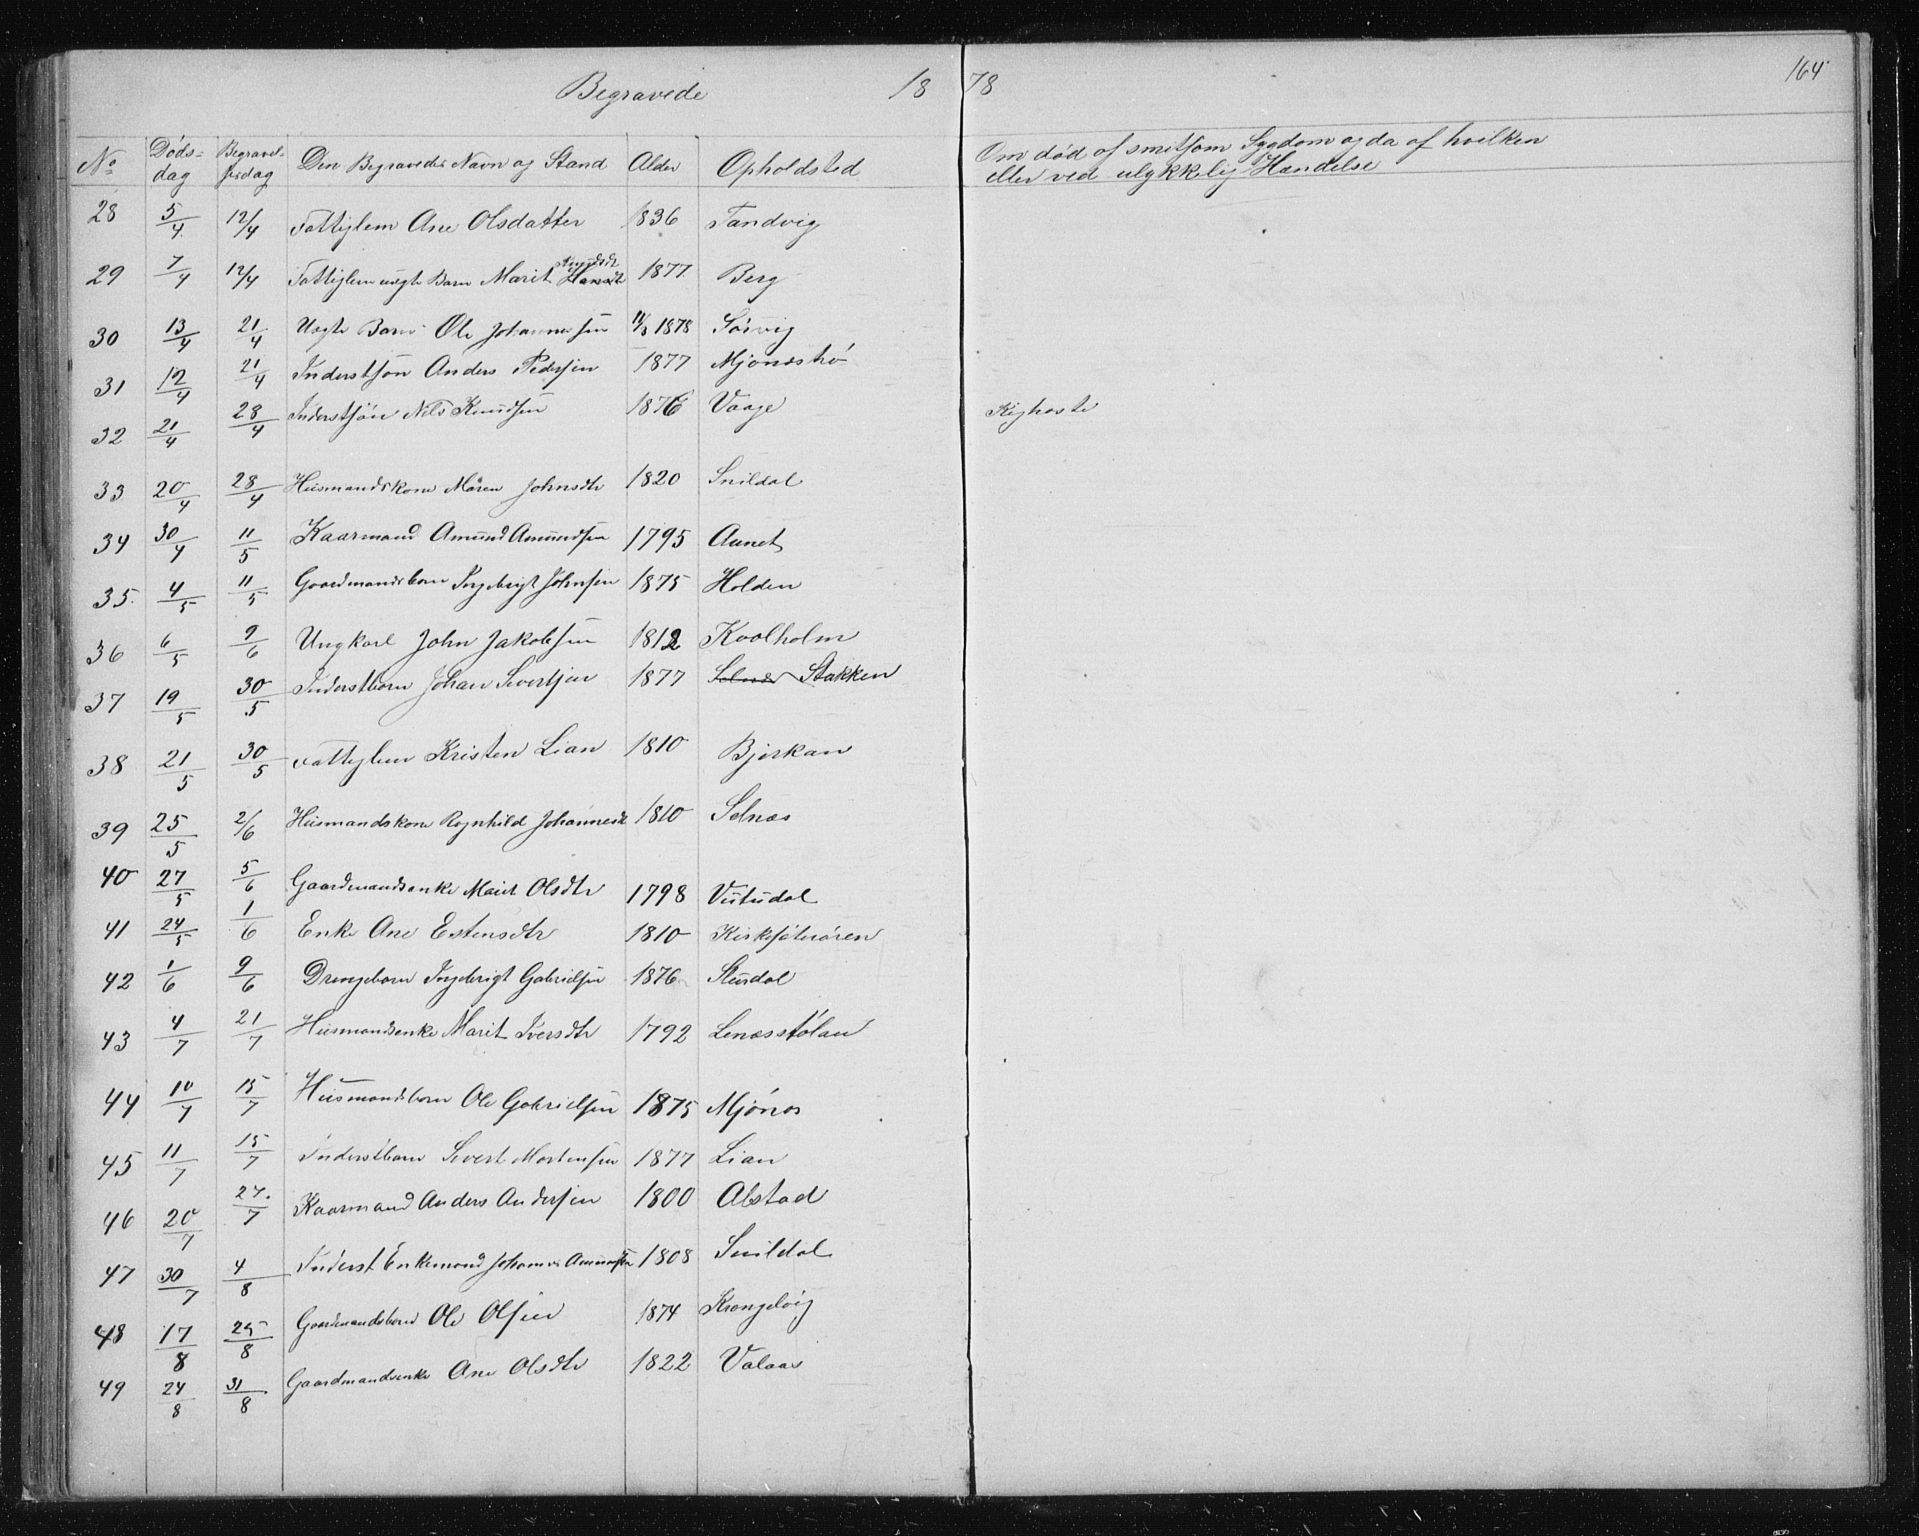 Begravede 1878 164
No Døds- Begravel- Den Begravedes Navn og Stand Alder Opholdsted Om død af smitsom Sygdom og da af hvilken
dag sesdag eller ved ulykkelig Hændelse
28 5/4 12/4 Fattiglem Ane Olsdatter 1836 Tandvig
29 7/4 12/4 Fattiglem uægte Barn Marit Hansdt 1877 Berg
30 13/4 21/4 Uægte Barn Ole Johannessen 11/3 1878 Sørvig
31 12/4 21/4 Inderstsøn Anders Pedersen 1877 Mjønestrø
32 21/4 28/4 Inderstsøn Nils Knudsen 1876 Vaage Kighoste
33 20/4 28/4 Husmandskone Maren Johnsdtr 1820 Snildal
34 30/4 11/5 Kaarmand Amund Amundsen 1795 Aunet
35 4/5 11/5 Gaardmandsbarn Ingebrigt Johnsen 1875 Holden
36 6/5 9/6 Ungkarl John Jakobsen 1812 Kvolholm
37 19/5 30/5 Inderstbarn Johan Sivertsen 1877 Selnæs Stakken
38 21/5 30/5 Fattiglem Kristen Lian 1810 Bjerkan
39 25/5 2/6 Husmandskone Ragnhild Johannesdt 1810 Selnæs
40 27/5 5/6 Gaardmandsenke Marit Olsdtr 1798 Vutudal
41 24/5 1/6 Enke Ane Estensdtr 1810 Kirksæterøren
42 1/6 9/6 Drengebarn Ingebrigt Gabrielsen 1876 Sturdal
43 4/7 21/7 Husmandsenke Marit Iversdtr 1792 Lenæsstølan
44 10/7 15/7 Husmandsbarn Ole Gabrielsen 1875 Mjønes
45 11/7 15/7 Inderstbarn Sivert Mortensen 1877 Lian
46 20/7 27/7 Kaarmand Anders Andersen 1800 Alstad
47 30/7 4/8 Inderst Enkemand Johannes Amundsen 1808 Snildal
48 17/8 25/8 Gaardmandsbarn Ole Olsen 1874 Krongelvig
49 24/8 31/8 Gaardmandsenke Ane Olsdtr 1822 Valaas